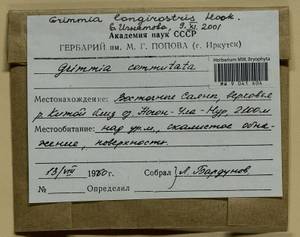 Grimmia longirostris Hook.
Е. Игнатова, 9.XI.2001
Академия наук СССР
ГЕРБАРИЙ им. М. Г. ПОПОВА (г. Иркутск)
Herbarium MW, Bryophyta
Grimmia commutata
Местонахождение: Восточные Саяны, верховье
р. Китой близ оз. 2100м
Местообитание: над ур.м., скалистое обна-
жение, поверхность
13/VIII 1960г. Собрал Л. Бардунов
Определил